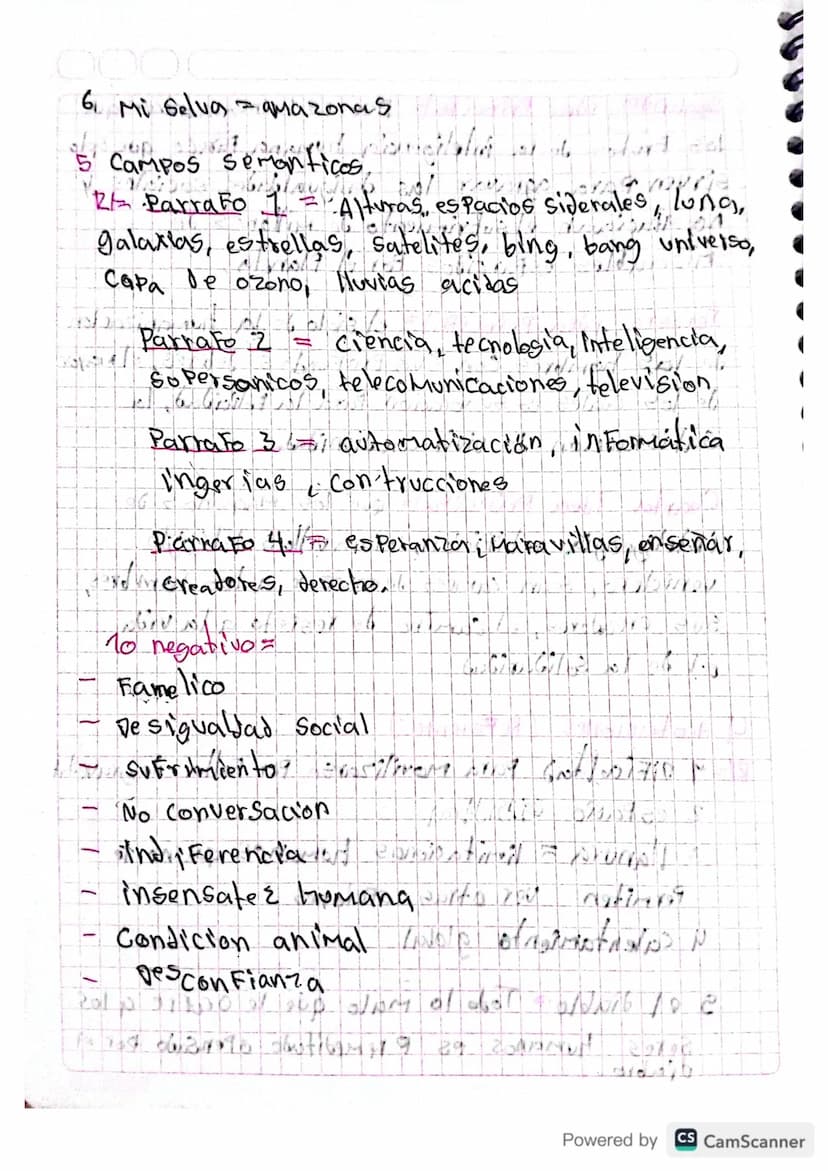 6. Mi Selva = amazonas
5 Campos semanticos
R/= Parrafo 1 = Alturas, espacios siderales, luna,
galaxias, estrellas, satelites, bing, bang universo,
capa de ozono, lluvias acidas
Parrafo 2 = ciencia, tecnologia, Inteligencia,
supersonicos, telecomunicaciones, television
Parrafo 3 = automatización, informática
ingerias, contrucciones
Parrafo 4 = esperanza, maravillas, enseñar,
creadores, derecho.
lo negativo =
- Famelico
- Desigualdad Social
- sufrimiento
- No conversacion
- indiferencia
- insensatez humana
- Condicion animal
- Desconfianza
Powered by CS CamScanner